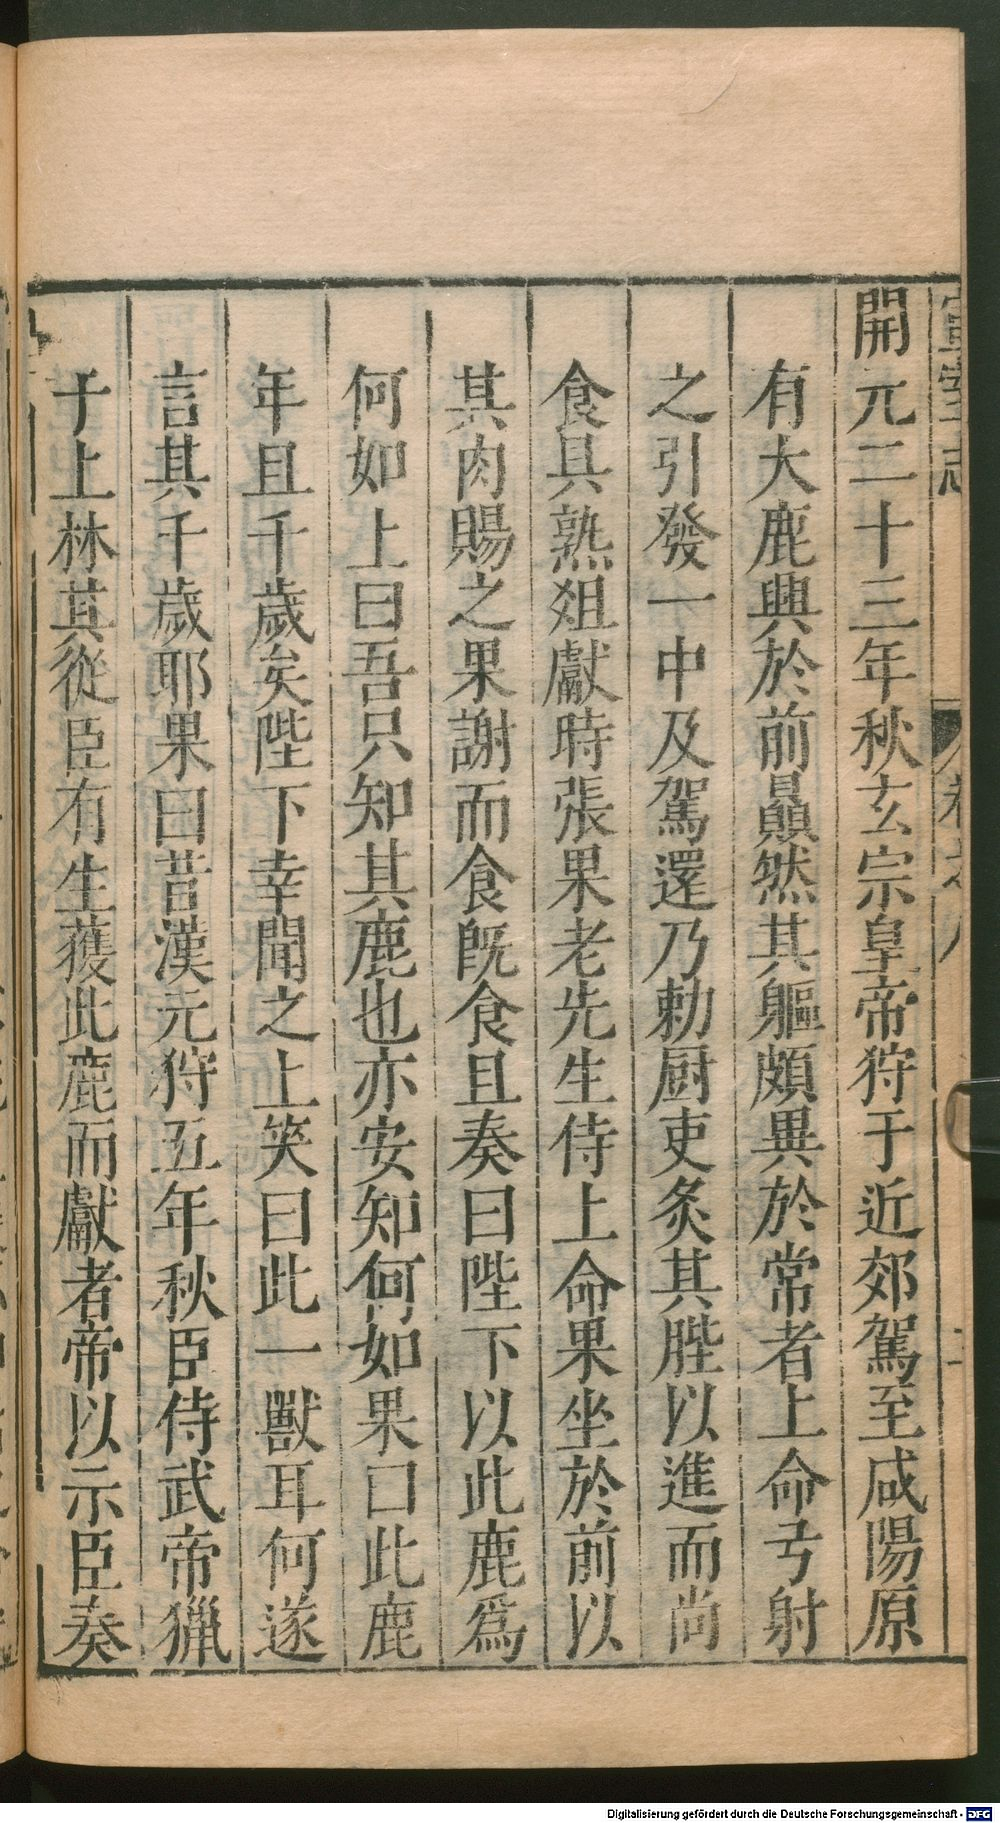 開元二十三年秋玄宗皇帝狩于近郊駕至咸陽原
有大鹿興於前贔然其軀頗異於常者上命弓射
之引發一中及駕還乃勅厨吏炙其胜以進而尚
食具熟俎獻時張果老先生侍上命果坐於前以
其肉賜之果謝而食既食且奏曰陛下以此鹿爲
何如上曰吾只知其鹿也亦安知何如果曰此鹿
年且千歲矣陛下幸聞之上笑曰此一獸耳何遂
言其千歲耶果曰昔漢元狩五年秋臣侍武帝獵
于上林其從臣有生獲此鹿而獻者帝以示臣奏
Digitalisierung gefördert durch die Deutsche Forschungsgemeinschaft - DFG